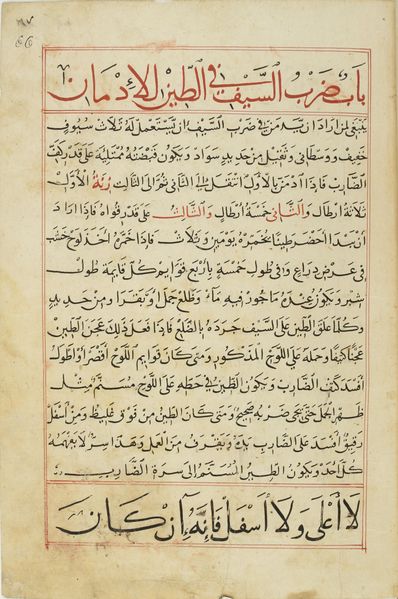 باب ضرب السيف في الطين للإدمان
ينبغي لمن أراد أن يدمن في ضرب السيف أن يستعمل له ثلاث سيوف
خفيف ووسطاني وثقيل من حديد سواد ويكون قبضته ممتلية على قدر كف
الضارب فاذا ادمن بالاول انتقل الى الثاني ثم الى الثالث زنة الأول
ثلاثة ارطال والثاني خمسة ارطال والثالث على قدر قواه فاذا اراد
أن يبدا احضر طينا يخمره يومين وثلاث فاذا خمره اخذ لوح خشب
في عرض ذراع وافي طول خمسة باربع قوايم كل قايمة طول
شبر ويكون عنده ماجور فيه ماء وظلع جمل او بقر او من حديد
وكلما علق الطين على السيف جرده بالضلع فاذا فعل ذلك عجن الطين
عجنا كيفا وحمله على اللوح المذكور ومتى كان قوايم اللوح اقصر او اطول
افسد كف الضارب ويكون الطين في حطه على اللوح مسنم مثل
ظهر الجمل حتى يجي ضربه صحيح ومتى كان الطين من فوق غليظ ومن أسفل
رقيق أفسد على الضارب يده ويقرف من العمل وهذا سر لا يفهمه
كل احد ويكون الطين المسنم الى سرة الضارب
لا أعلى ولا أسفل فإنه إن كان